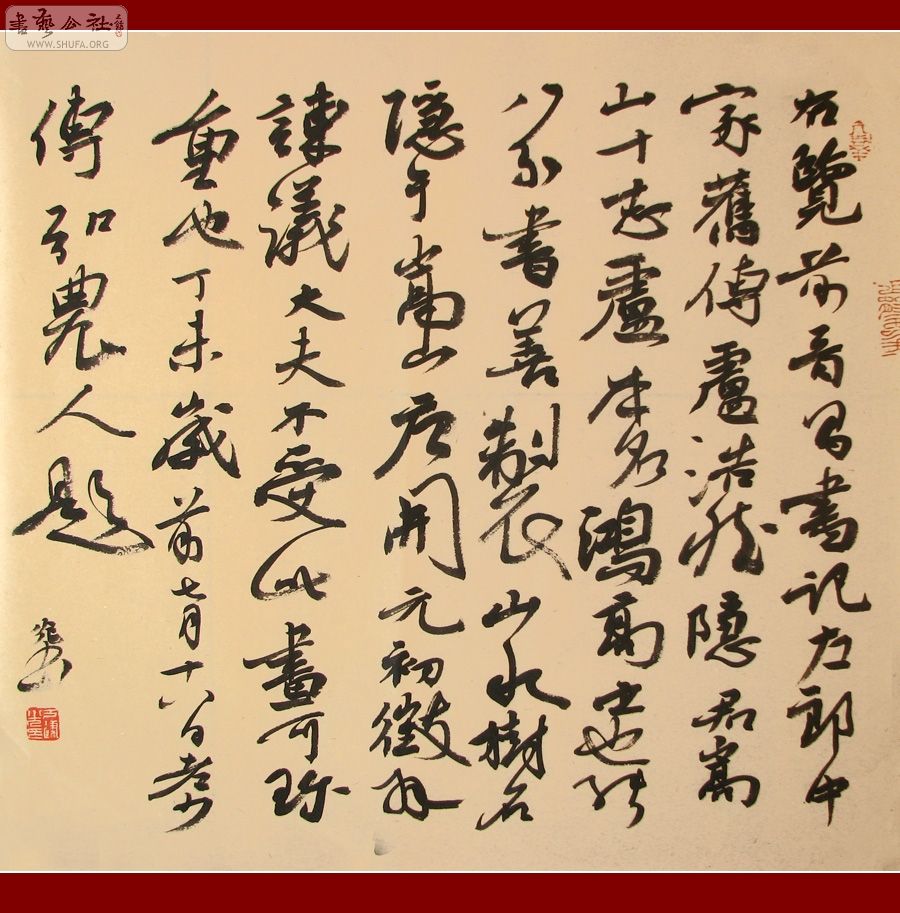 書藝公社
WWW.SHUFA.ORG
右覽前晋昌書記左郎中
家舊傳盧浩然隱居嵩
山十志盧本名鴻高士也能
八分書善製山水樹石
隱于嵩山唐開元初徵拜
諫議大夫不受此畫可珎
重也丁未歲前七月十八日老少
傅弘農人題